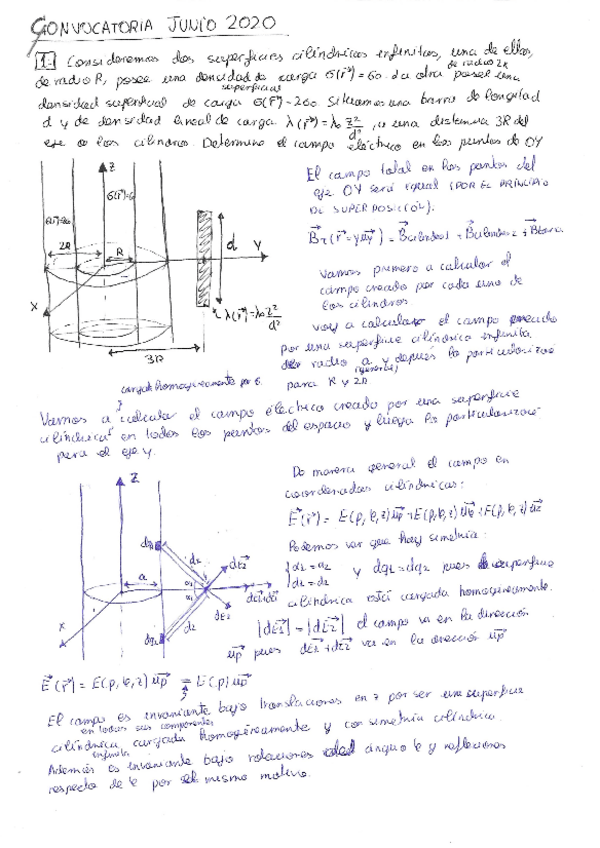 CONVOCATORIA JUNIO 2020
1. Consideremos dos superficies cilíndricas infinitas, una de ellas,
de radio R, posee una densidad de carga σ(r⃗)=σ0. La otra de radio 2R posee una
densidad superficial de carga superficial σ(r⃗)=2σ0. Situamos una barra de longitud
d y de densidad lineal de carga λ(r⃗)=λ0 z²/d², a una distancia 3R del
eje de los cilindros. Determine el campo eléctrico en los puntos de OY
El campo total en los puntos del
eje OY será igual (POR EL PRINCIPIO
DE SUPERPOSICIÓN).
vamos primero a calcular el
campo creado por cada uno de
los cilindros
voy a calcular el campo creado
por una superficie cilíndrica infinita
de radio a y después lo particularizo
para R y 2R
Z
2R
R
d
Y
X
λ(r⃗)=λ0 z²/d²
3R
cargada homogéneamente por σ.
Vamos a calcular el campo eléctrico creado por una superficie
cilíndrica en todos los puntos del espacio y luego lo particularizo
para el eje y.
Z
a
X
De manera general el campo en
coordenadas cilíndricas:
Podemos ver que hay simetría:
α1 = α2
d1 = d2
y dq1 = dq2 pues la superficie
cilíndrica está cargada homogéneamente.
|dE⃗1| = |dE⃗2| el campo va en la dirección
u⃗ρ pues dE⃗1+dE⃗2 va en la dirección u⃗ρ
E⃗(r⃗) = E(ρ,φ,z) u⃗ρ = E(ρ) u⃗ρ
El campo es invariante bajo translaciones en z por ser una superficie
en todas sus componentes
cilíndrica infinita cargada homogéneamente y con simetría cilíndrica.
Además es invariante bajo rotaciones del ángulo φ y reflexiones
respecto de φ por el mismo motivo.